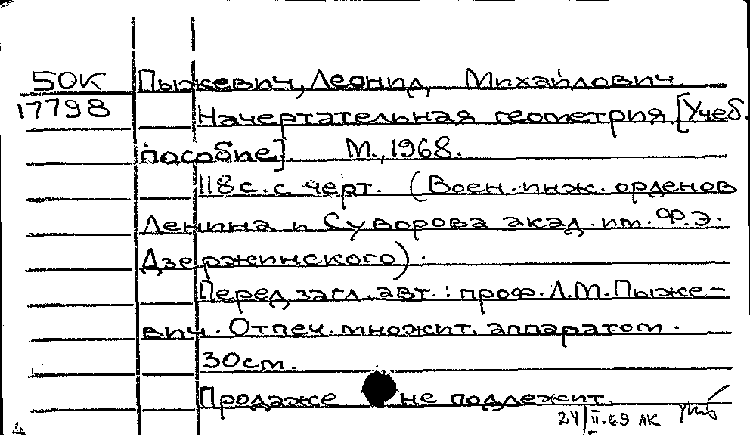 50К Пыжевич, Леонид Михайлович
17798 Начертательная геометрия. [Учеб.
пособие]. М., 1968.
118 с. с черт. (Воен.-инж. орденов
Ленина и Суворова акад. им. Ф.Э.
Дзержинского).
Перед загл. авт.: проф. Л.М. Пыже-
вич. Отпеч. множит. аппаратом.
30 см.
Продаже не подлежит.
24/II-69 АК